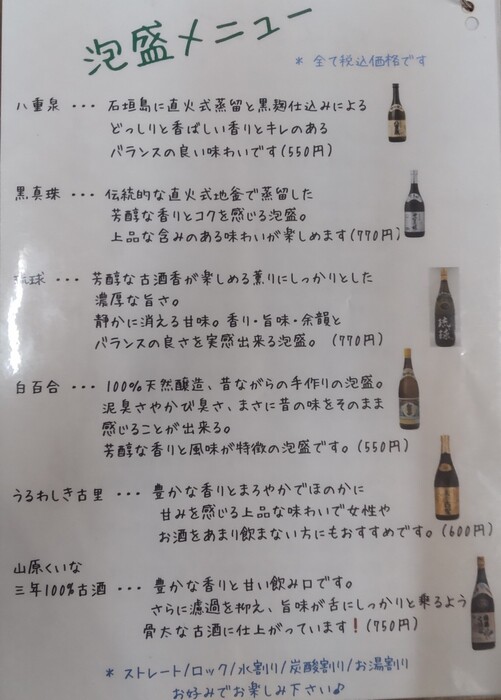 泡盛メニュー
* 全て税込価格です
八重泉 ・・・ 石垣島に直火式蒸留と黒麹仕込みによる
どっしりと香ばしい香りとキレのある
バランスの良い味わいです(550円)
黒真珠 ・・・ 伝統的な直火式地釜で蒸留した
芳醇な香りとコクを感じる泡盛。
上品な含みのある味わいが楽しめます(770円)
琉球 ・・・ 芳醇な古酒香が楽しめる薫りにしっかりとした
濃厚な旨さ。
静かに消える甘味。香り・旨味・余韻と
バランスの良さを実感出来る泡盛。(770円)
琉球
白百合 ・・・ 100%天然醸造、昔ながらの手作りの泡盛。
泥臭さやかび臭さ、まさに昔の味をそのまま
感じることが出来る。
芳醇な香りと風味が特徴の泡盛です。(550円)
うるわしき古里 ・・・ 豊かな香りとまろやかでほのかに
甘みを感じる上品な味わいで女性や
お酒をあまり飲まない方にもおすすめです。(600円)
山原くいな
三年100%古酒 ・・・ 豊かな香りと甘い飲み口です。
さらに濾過を抑え、旨味が舌にしっかりと乗るよう
骨太な古酒に仕上がっています!(750円)
* ストレート/ロック/水割り/炭酸割り/お湯割り
お好みでお楽しみ下さい♪